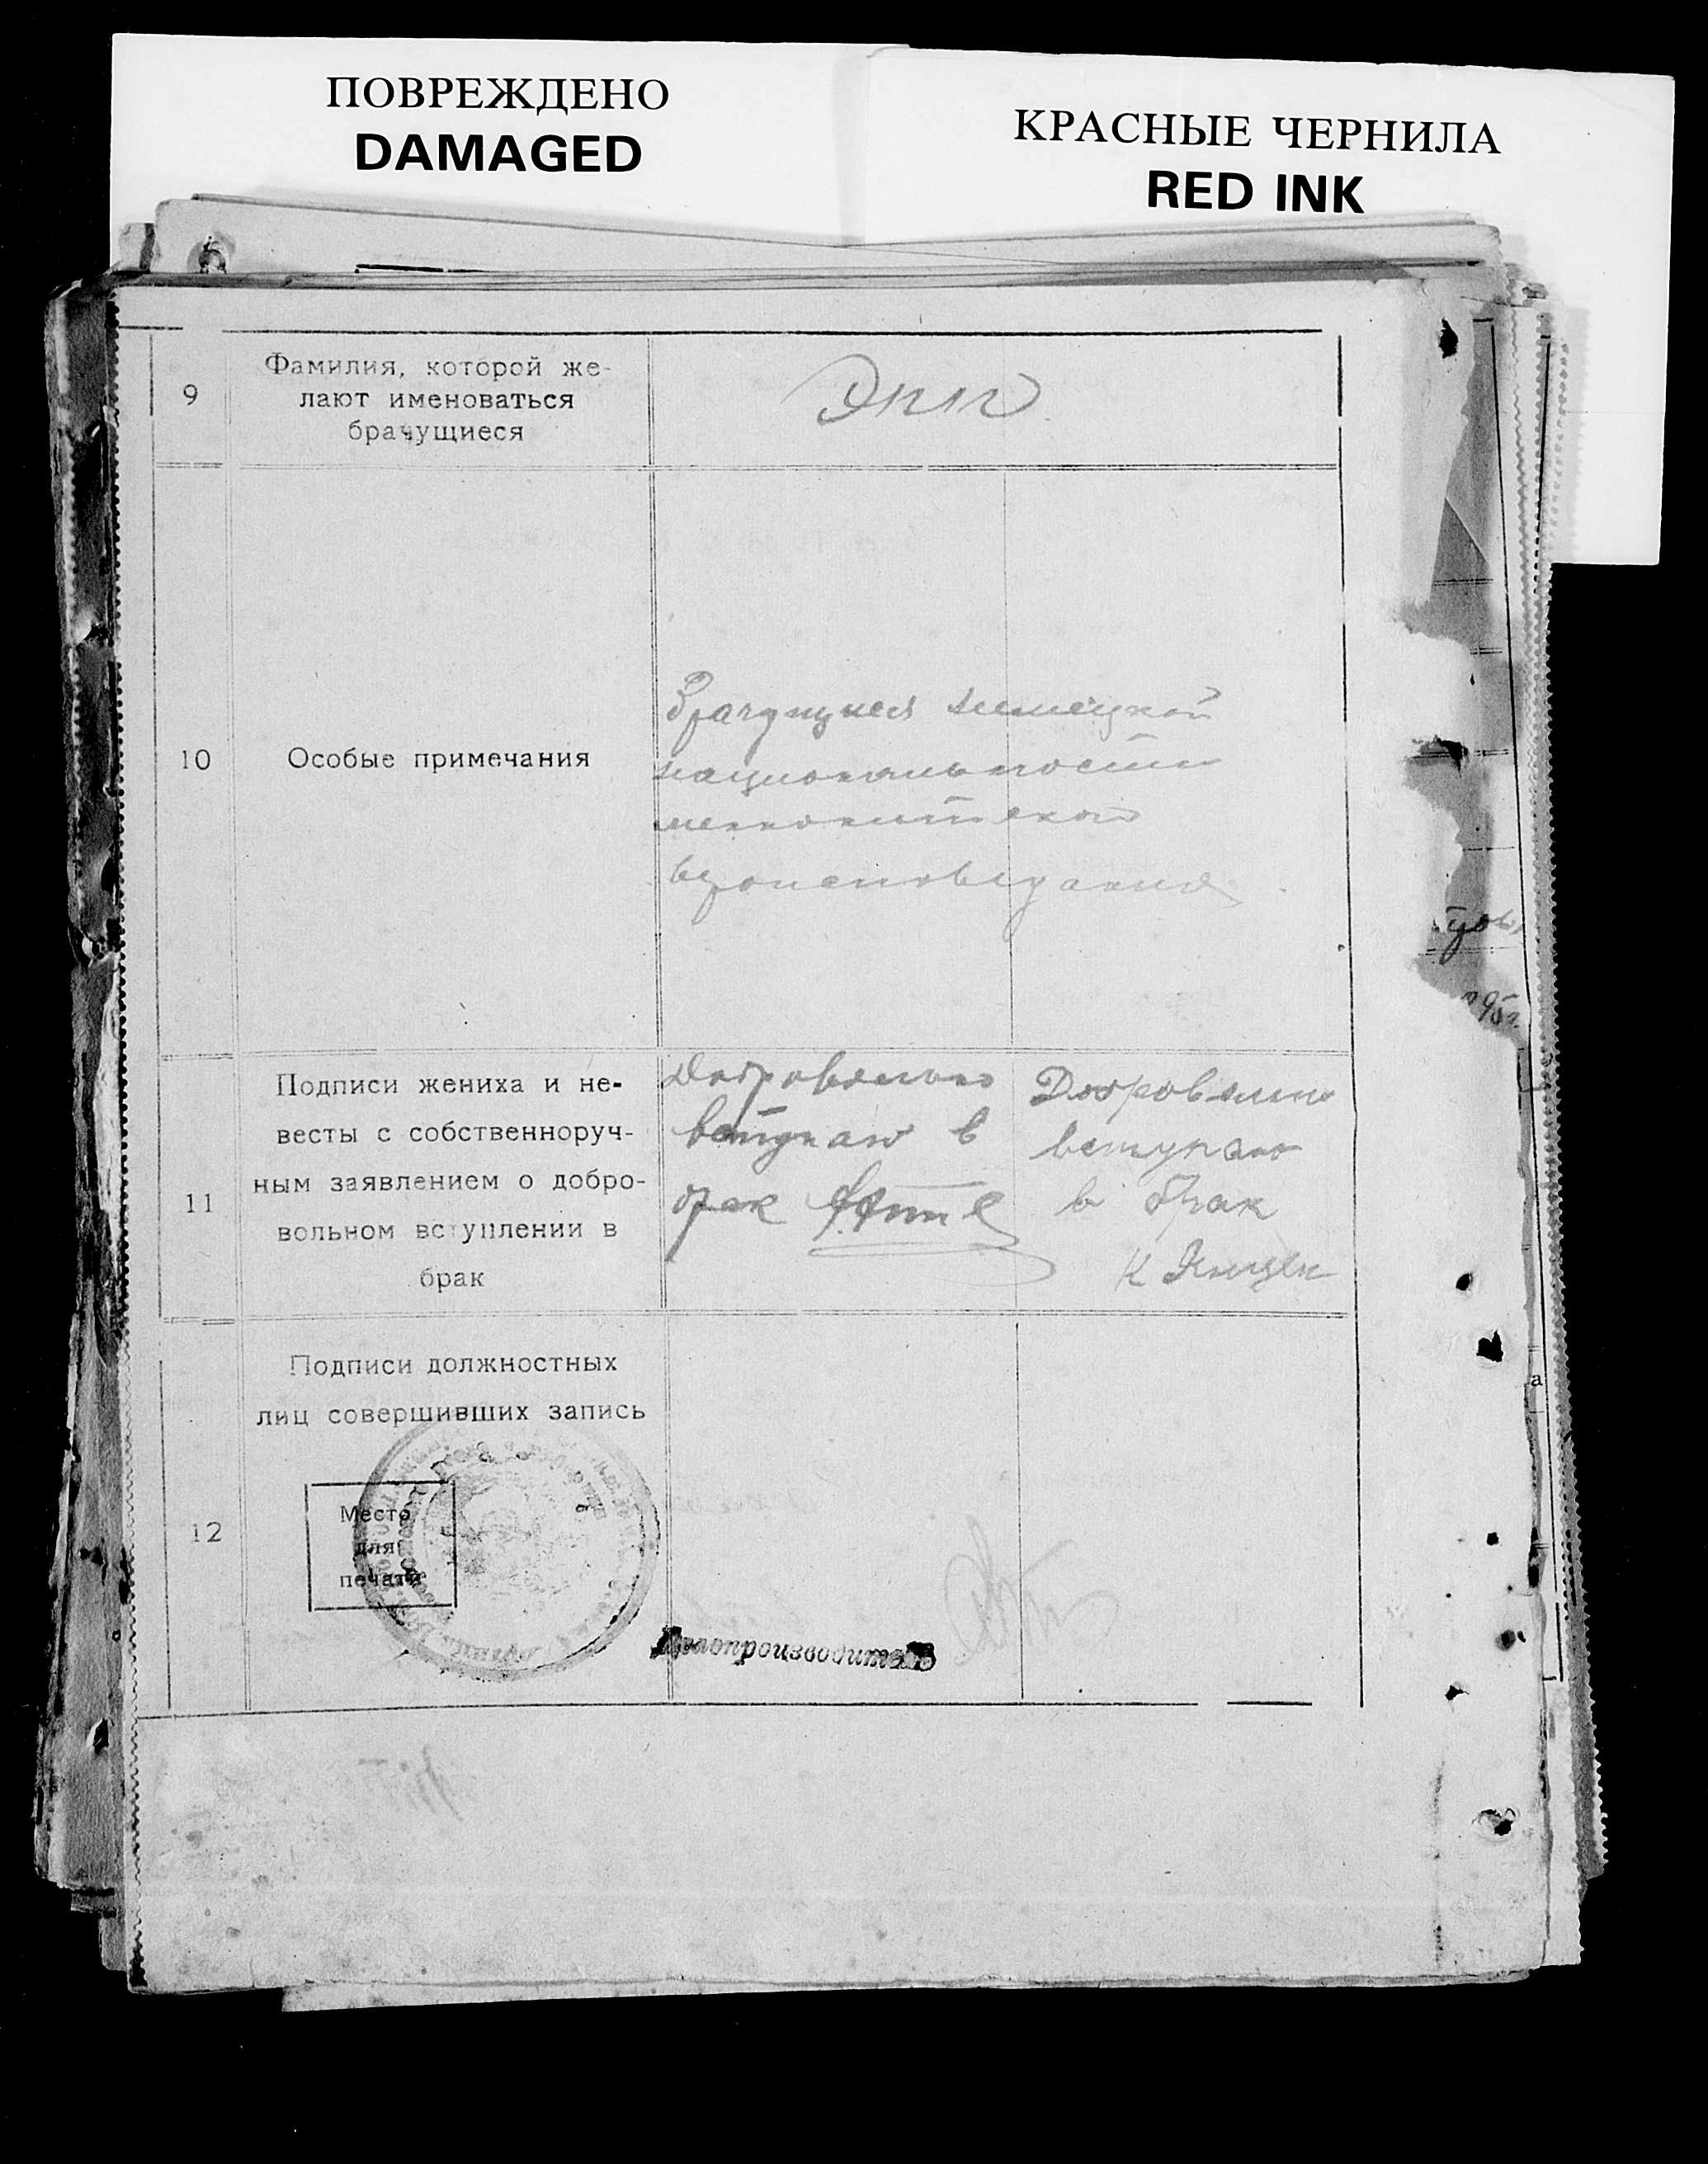 ПОВРЕЖДЕНО
DAMAGED
КРАСНЫЕ ЧЕРНИЛА
RED INK
9
Фамилия, которой же-
лают именоваться
брачущиеся
Эпп
10
Особые примечания
Брачущиеся немецкой
национальности
меннонитской
вероисповедания
11
Подписи жениха и не-
весты с собственноруч-
ным заявлением о добро-
вольном вступлении в
брак
Добровольно
вступаю в
брак
Добровольно
вступаю
в брак
К
12
Подписи должностных
лиц совершивших запись
Место
для
печати
Делопроизводитель